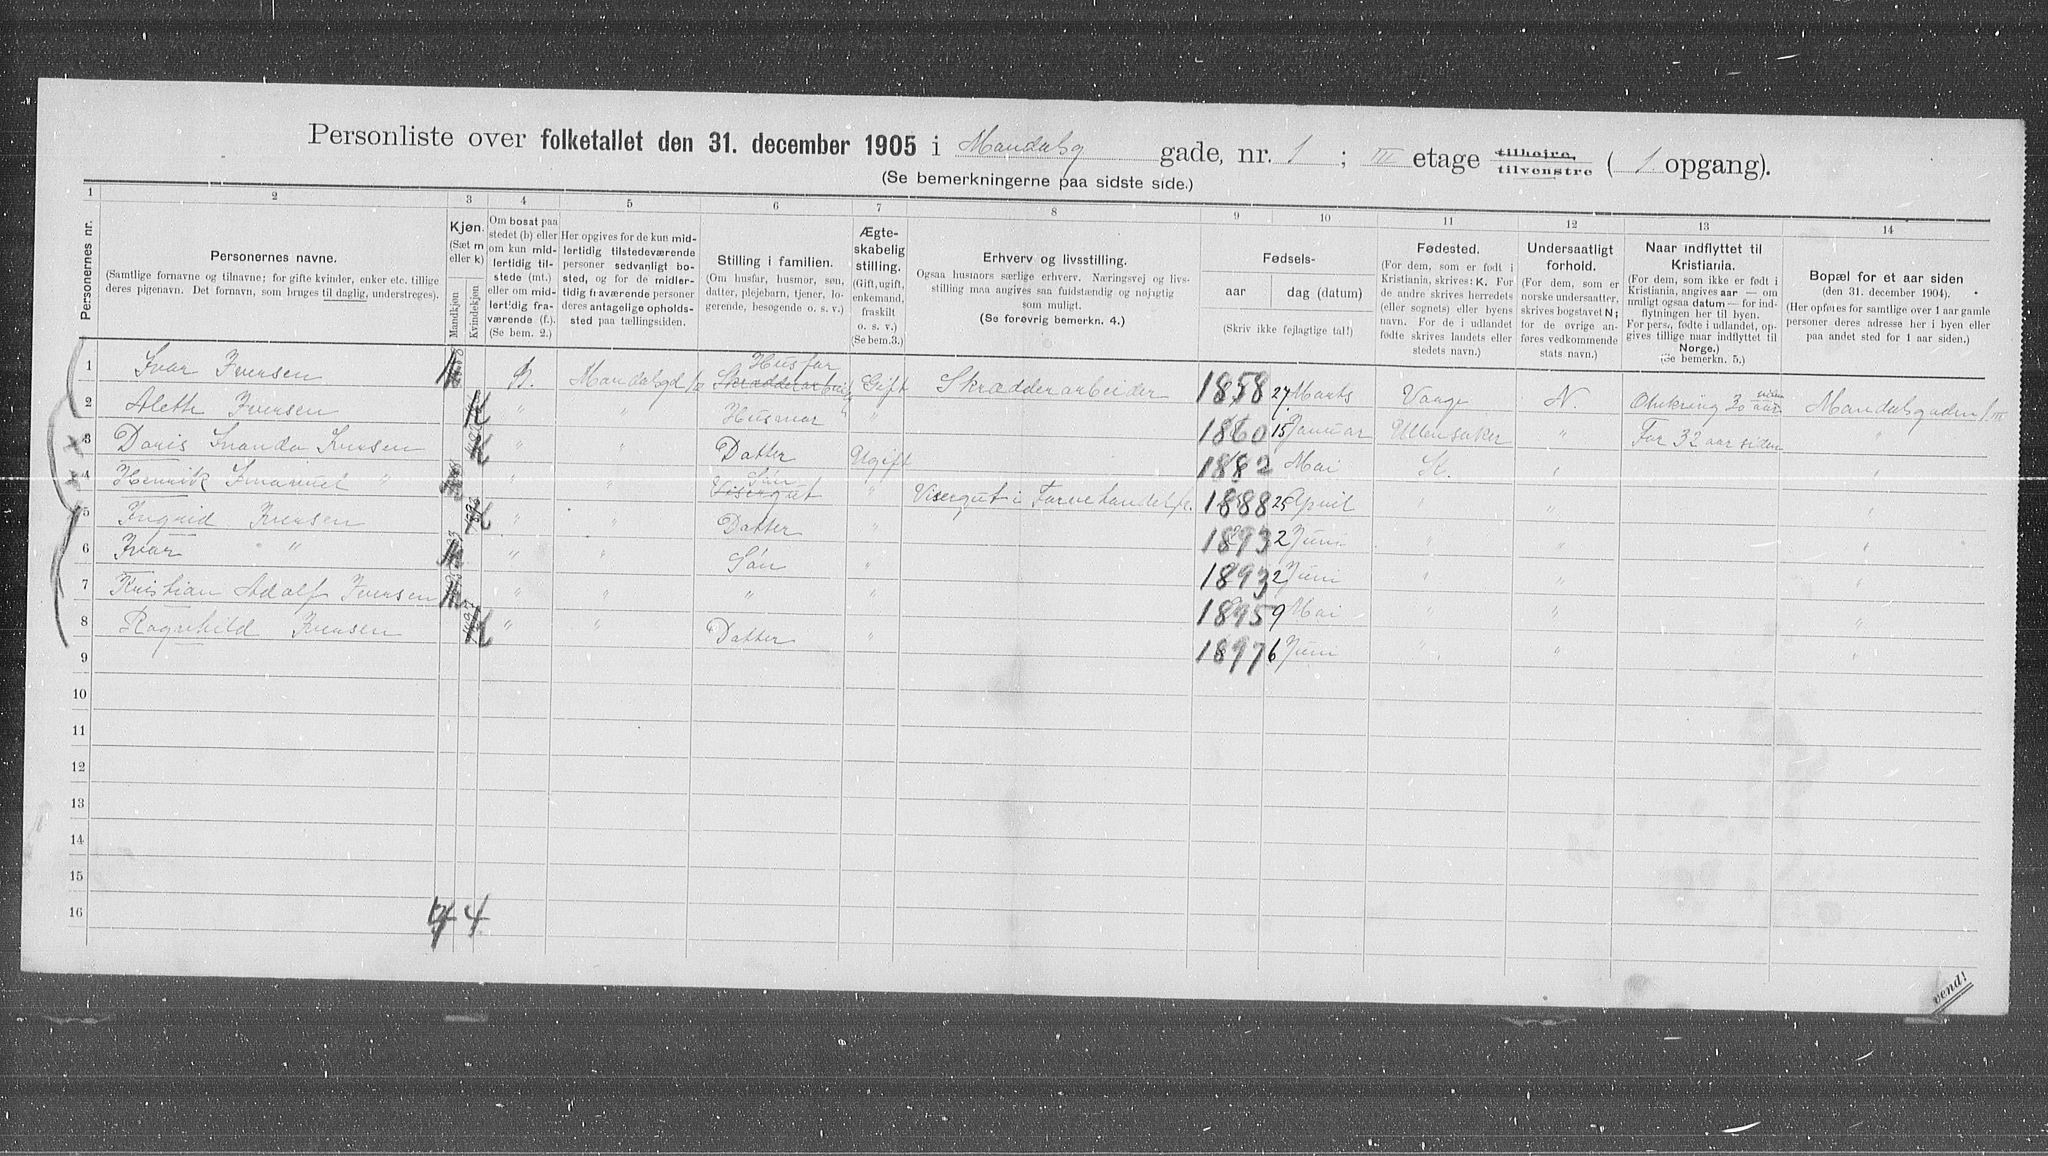 Personliste over folketallet den 31. december 1905 i Mandalsg gade, nr. 1 ; III etage tilhøire, tilvenstre ( 1. opgang).
(Se bemerkningerne paa sidste side.)
1 2 3 4 5 6 7 8 9 10 11 12 13 14
Personernes nr.
Personernes navne.
(Samtlige fornavne og tilnavne; for gifte kvinder, enker etc. tillige
deres pigenavn. Det fornavn, som bruges til daglig, understreges).
Kjøn.
(Sæt m
eller k)
Mandkjøn
Kvindekjøn
Om bosat paa
stedet (b) eller
om kun mid-
lertidig til-
stede (mt.)
eller om mid-
lertidig fra-
værende (f.).
(Se bem. 2.)
Her opgives for de kun mid-
lertidig tilstedeværende
personer sedvanligt bo-
sted, og for de midler-
tidig fraværende personer
deres antagelige opholds-
sted paa tællingstiden.
Stilling i familien.
(Om husfar, husmor, søn,
datter, plejebarn, tjener, lo-
gerende, besøgende o. s. v.)
Ægte-
skabelig
stilling.
(Gift, ugift,
enkemand,
fraskilt
o. s. v.)
(Se bem.3.)
Erhverv og livsstilling.
Ogsaa husmors særlige erhverv. Næringsvej og livs-
stilling maa angives saa fuldstændig og nøjagtig
som muligt.
(Se forøvrig bemerkn. 4.)
Fødsels-
aar
dag (datum)
(Skriv ikke fejlagtige tal!)
Fødested.
(For dem, som er født i
Kristiania, skrives: K. For
de andre skrives herredets
(eller sognets) eller byens
navn. For de i udlandet
fødte skrives landets eller
stedets navn.)
Undersaatligt
forhold.
(For dem, som er
norske undersaatter,
skrives bogstavet N;
for de øvrige an-
føres vedkommende
stats navn.)
Naar indflyttet til
Kristiania.
(For dem, som ikke er født i
Kristiania, angives aar — om
muligt ogsaa datum — for ind-
flytningen her til byen.
For pers., fødte i udlandet, op-
gives tillige naar indflyttet til
Norge.)
(Se bemerkn. 5.)
Bopæl for et aar siden
(den 31. december 1904).
(Her opføres for samtlige over 1 aar gamle
personer deres adresse her i byen eller
paa andet sted for 1 aar siden.)
1 Ivar Iversen m B. Mandalsgd Husfar Skrædderarbei Gift Skrædderarbeider 1858 27 Marts Vaage N. Omkring 30 aar siden Mandalsgaden 1 III
2 Aleth Iversen K " " Husmor " 1860 15 Januar Ullensaker " For 32 aar siden "
3 Doris Iversen K " " Datter Ugift 1882 Mai K. " "
4 Henrik " m " " Søn Visergut " Visergut i Farvehandel 1888 25 April " " "
5 Ingrid Iversen K " " Datter " 1893 2 Juni " " "
6 Ivar " m " " Søn " 1893 2 Juni " " "
7 Kristian Adolf Iversen m " " " " 1895 9 Mai " " "
8 Ragnhild Iversen K " " Datter " 1897 6 Juni " " "
9
10
11
12
13
14
15
16
4 4
vend!